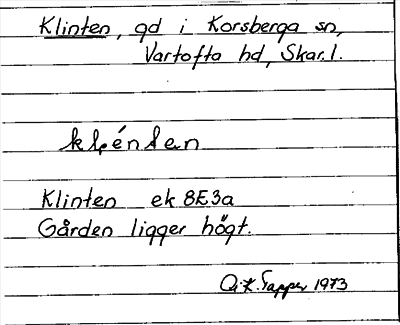 Klinten, gd i Korsberga sn,
Vartofta hd, Skar. l.
Klinten ek 8E3a
Gården ligger högt.
Tapper 1973